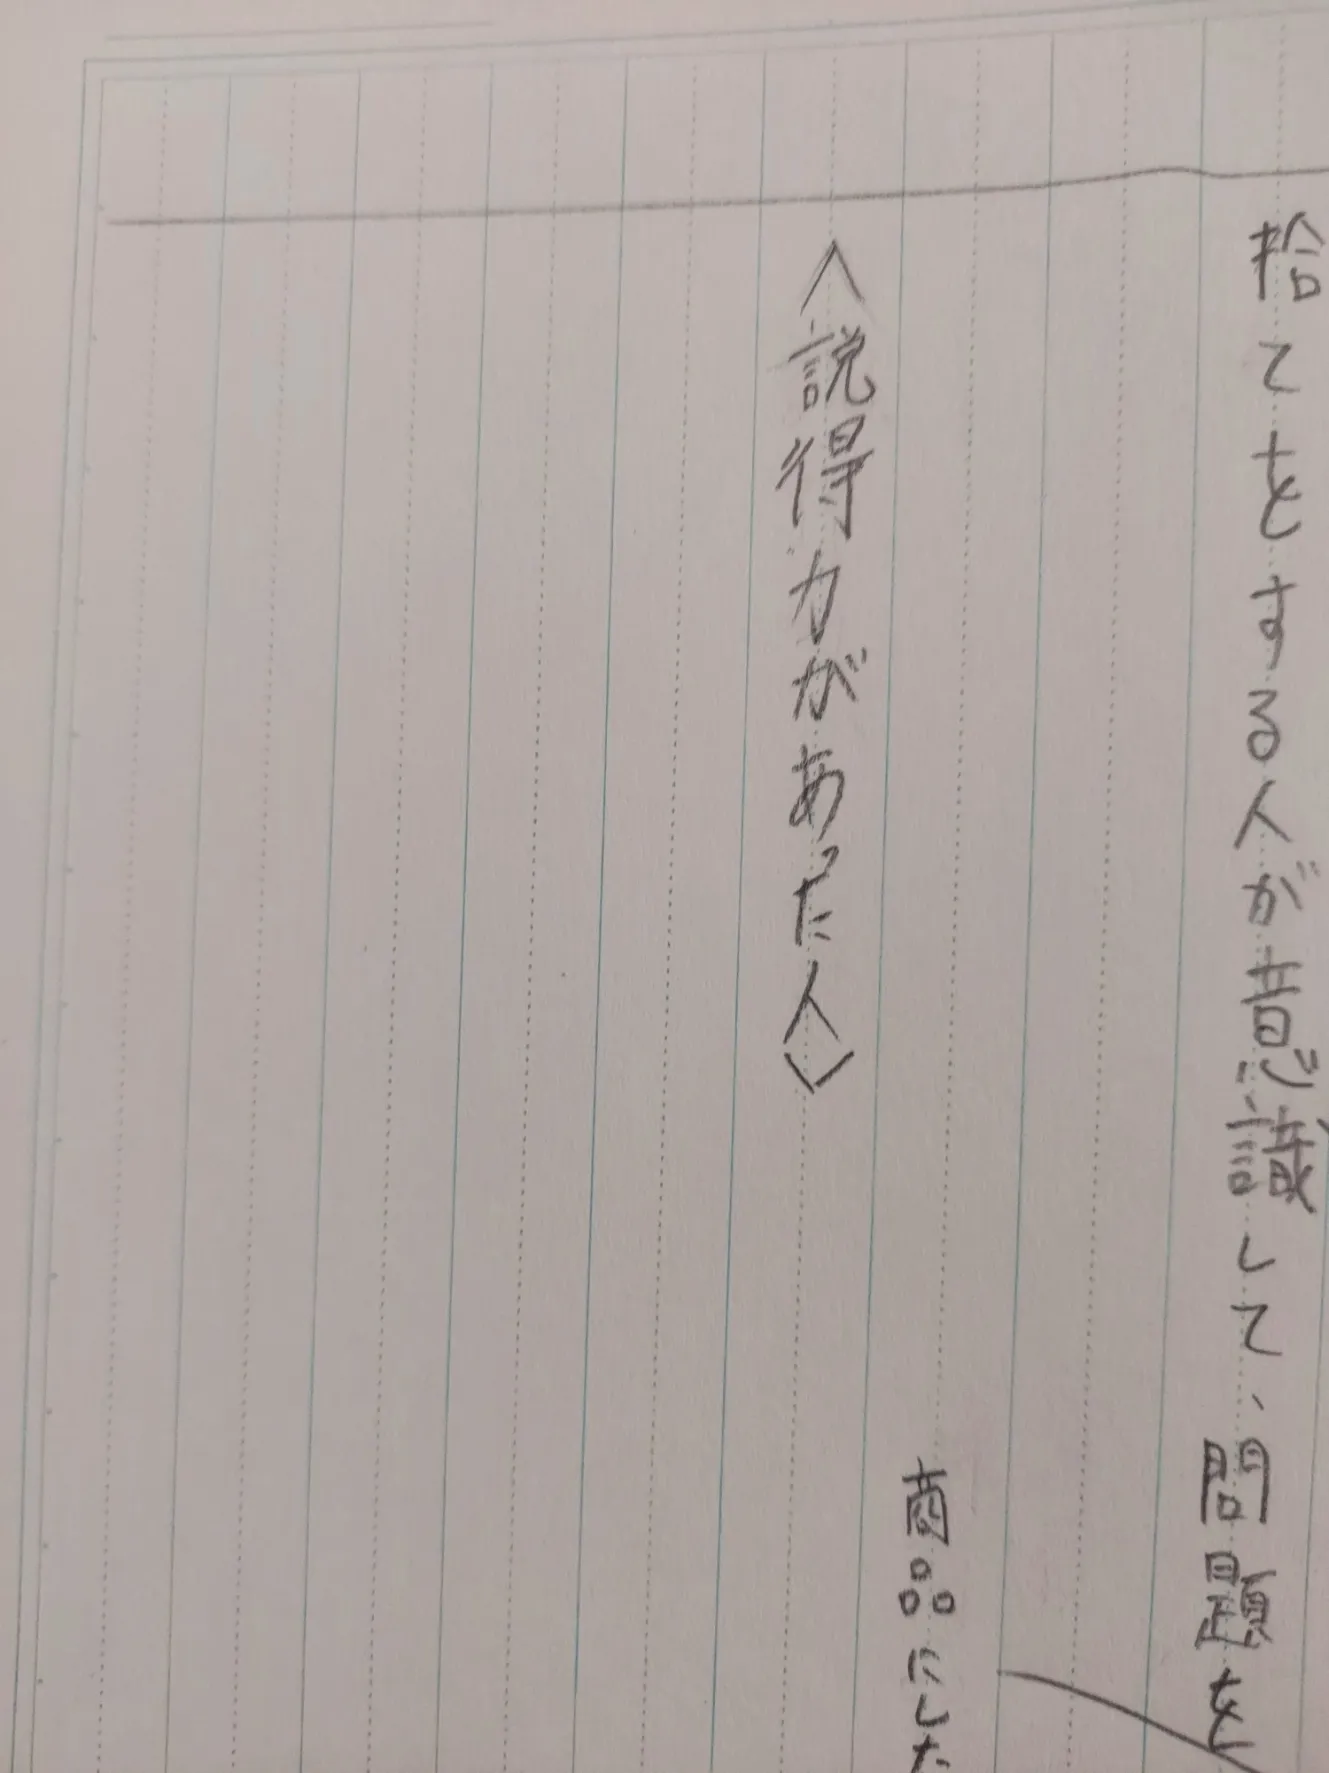 拾てをする人が意識して、問題を
商品にした
〈説得力があった人〉